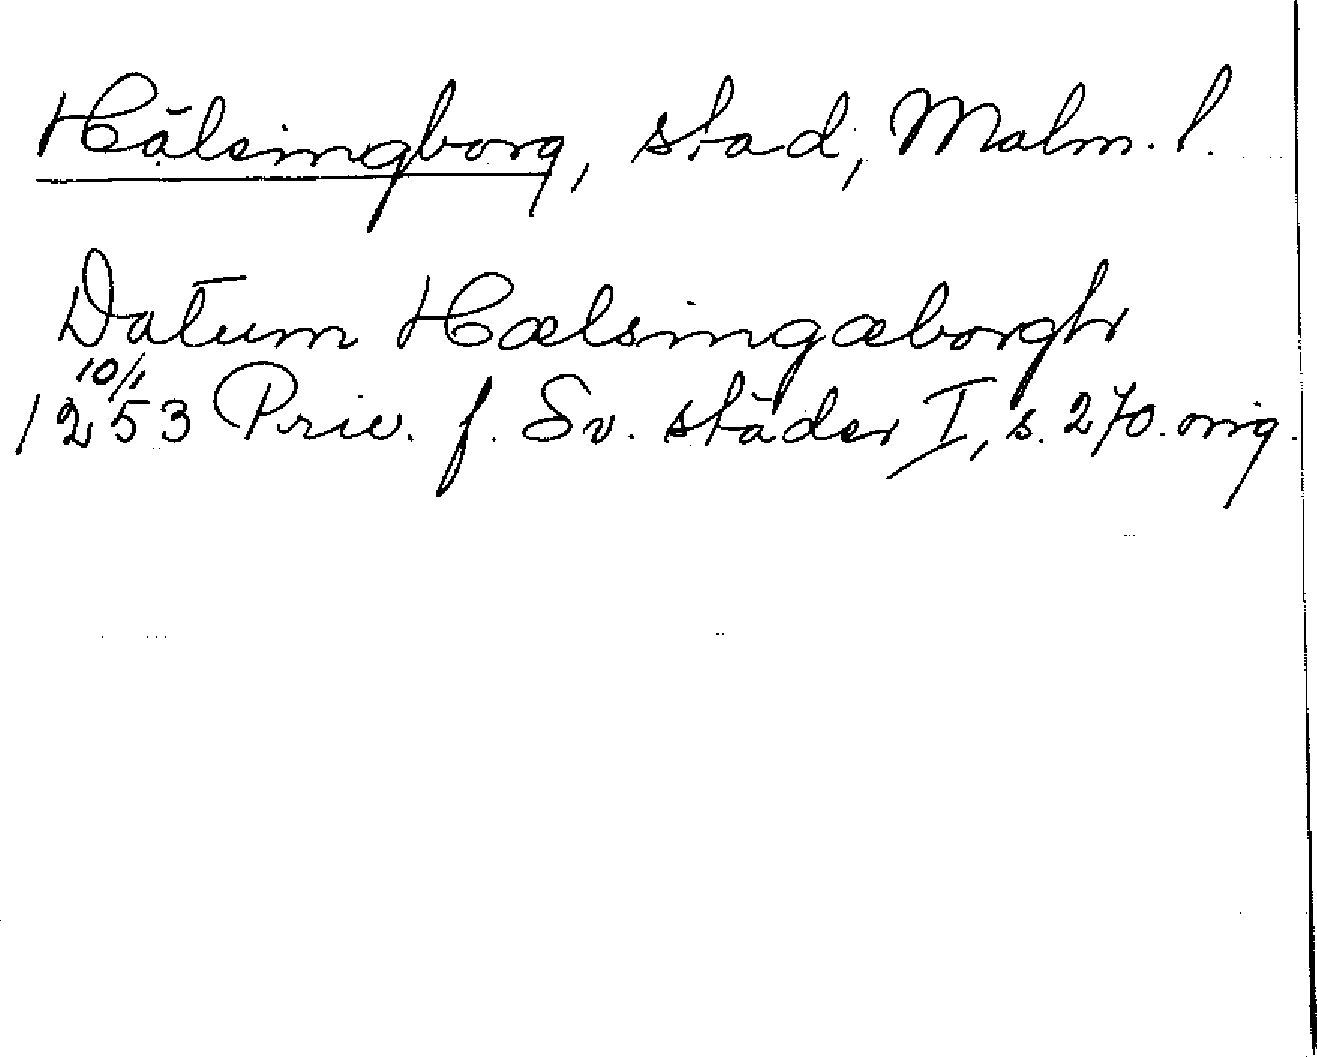 Hälsingborg, stad, Malm. l.
Datum Hælsingæborghr
10/1
1253 Priv. f. Sv. städer I, s. 270. orig.